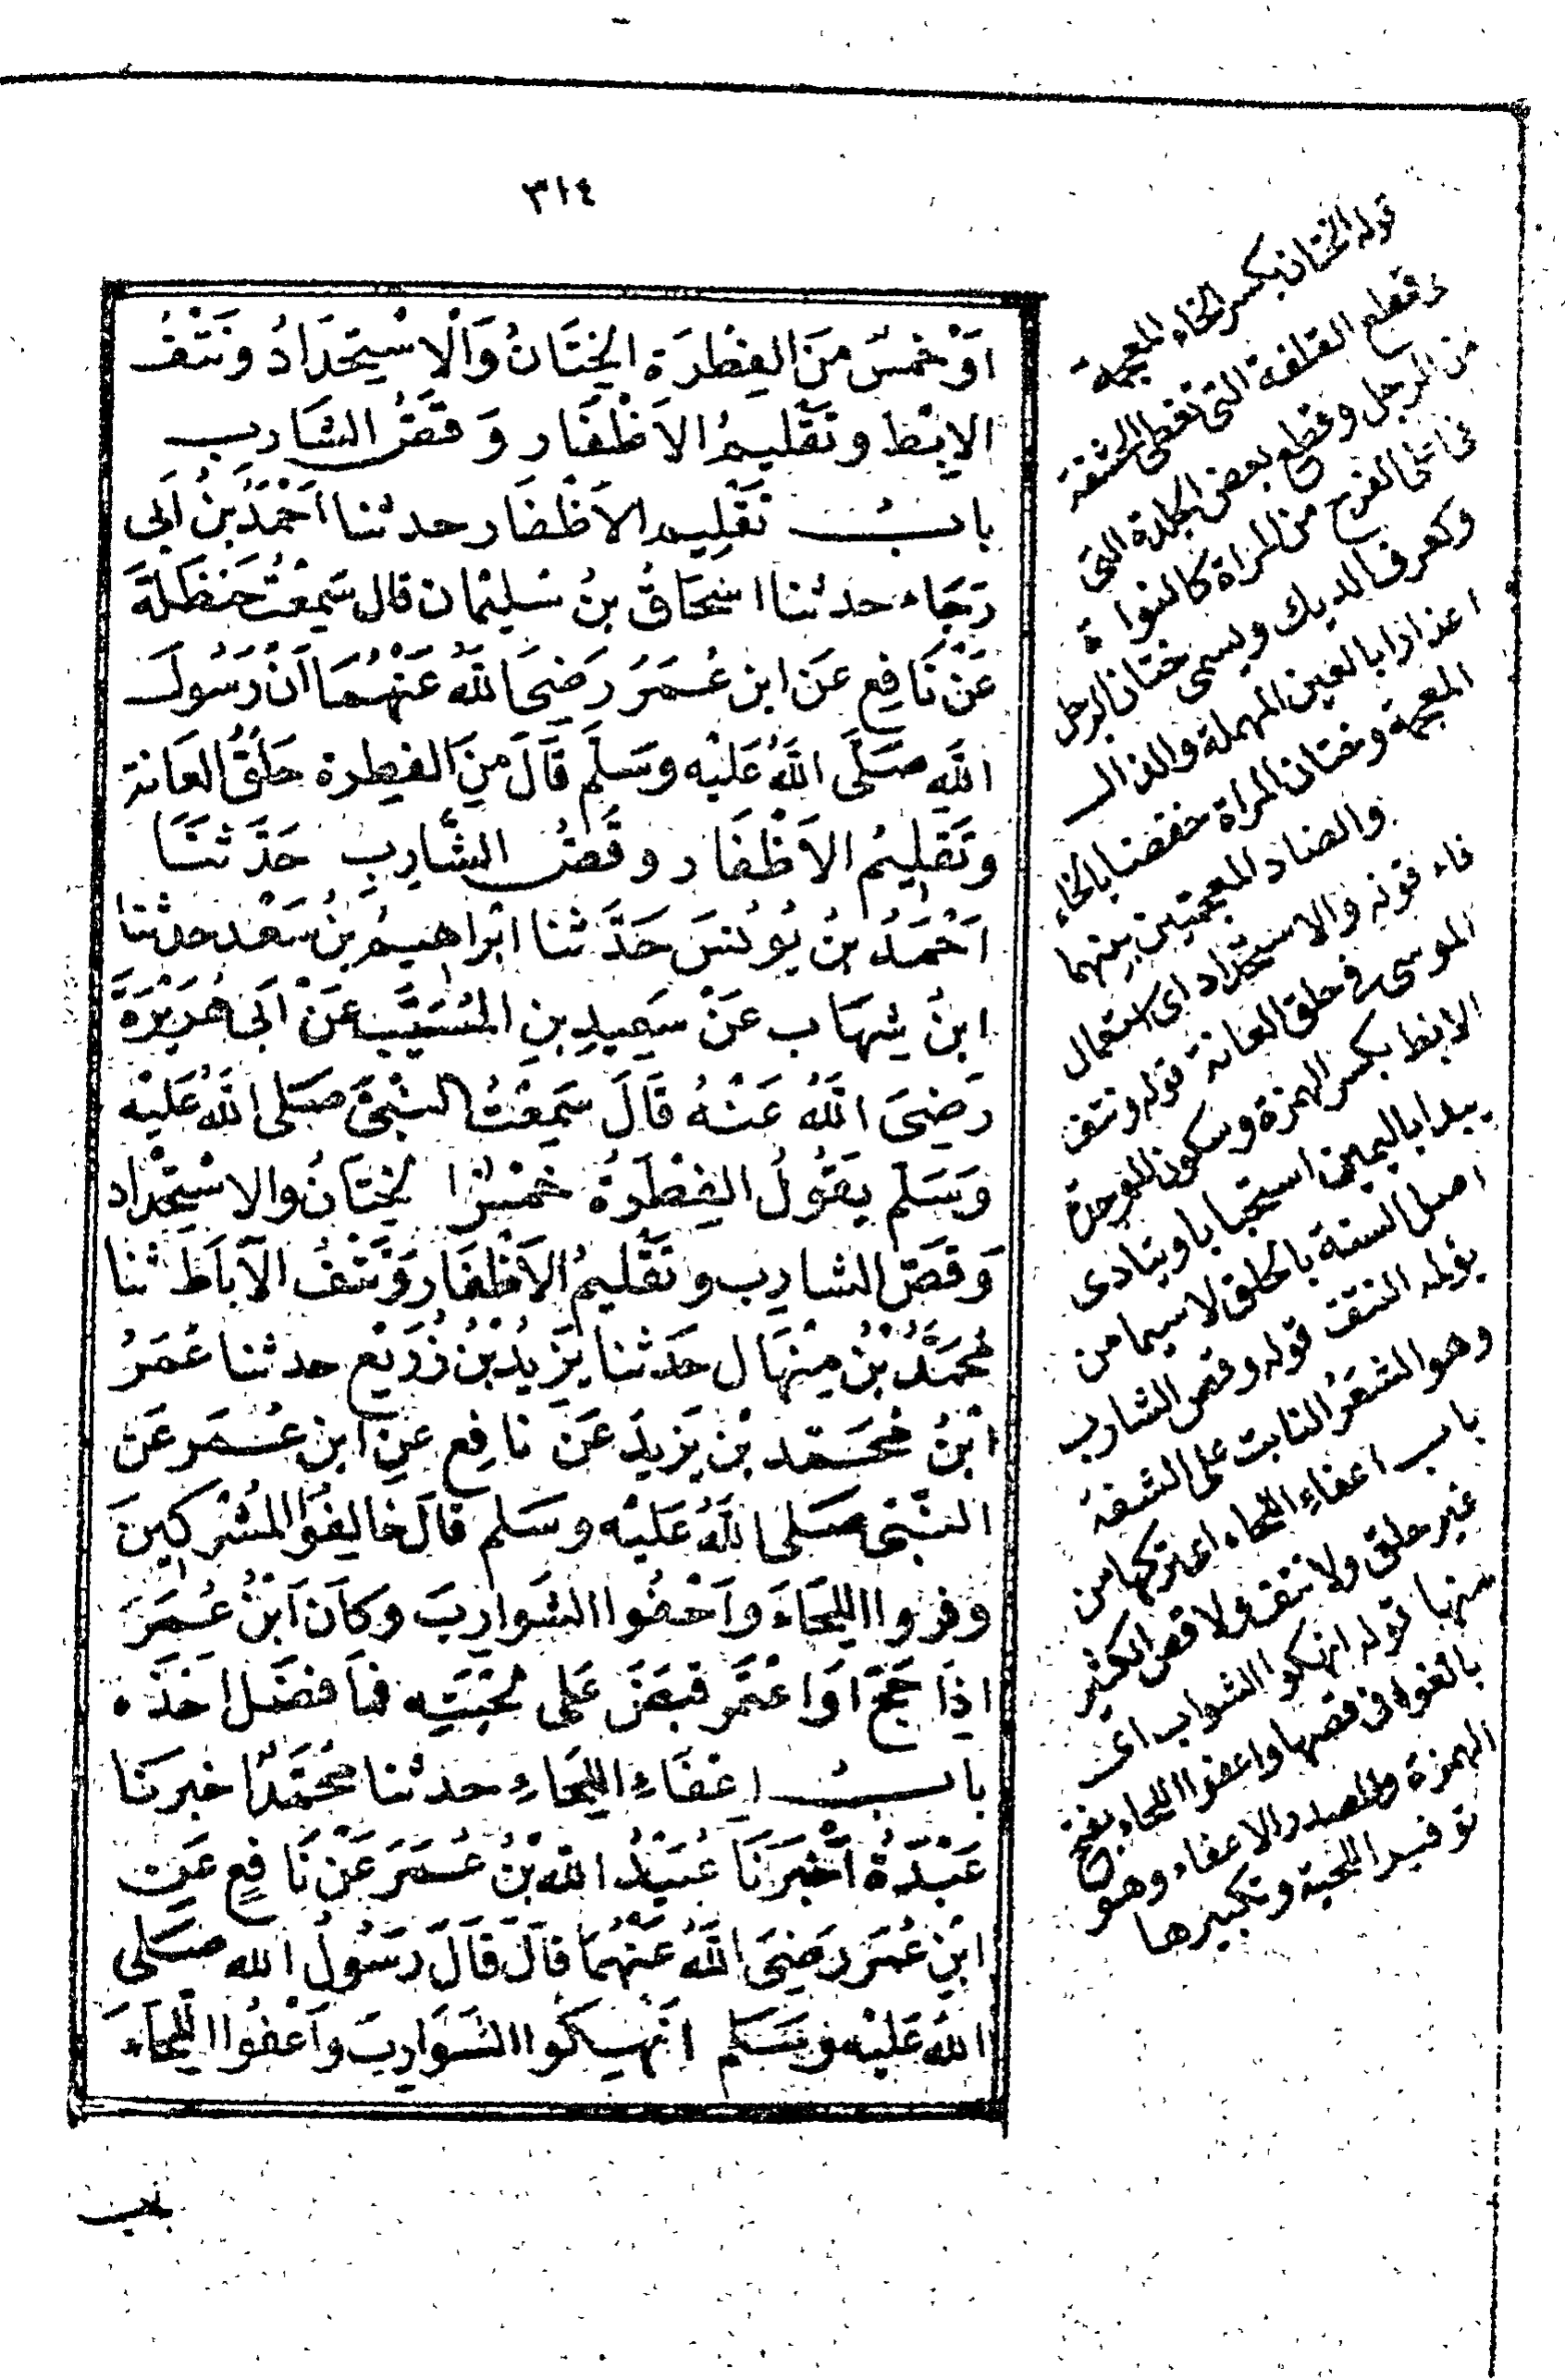 ٣١٤
اَوْ خَمْسٌ مِنَ الفِطْرَةِ الخِتَانُ وَالْاسْتِحْدَادُ وَنَتْفُ
الابْط وتَقْلِيمُ الاَظْفَار وَقَصُّ الشَارِب
بابُ تَقْلِيمِ الاَظْفَار حدثنا اَحْمَدُ بنُ اَبى
رَجَاء حدثنا اسْحَاقُ بنُ سُلَيْمان قال سَمِعْتُ حَنْظَلَةَ
عَنْ نَافِعٍ عَن ابن عُمَرَ رَضِىَ اللهُ عَنْهُمَا اَنْ رَسُولَ
اللهِ صَلَّى اللهُ عَلَيْه وسَلَّم قَالَ مِنَ الفِطِرة حَلْقُ العَانة
وتَقْلِيمُ الاَظْفَار وقَصُّ الشَّارِبِ حَدَّثَنَا
اَحْمَدُ بنُ يُونُسَ حَدَّثنا ابْراهيمُ بنُ سَعْد حدثنا
ابنُ شِهَاب عَنْ سَعِيدِ بنِ المُسَيَّب عَنْ اَبى هُرَيْرَةَ
رَضِىَ اللهُ عَنْهُ قَالَ سَمِعْتُ النَّبىَّ صَلى اللهُ عَلَيْه
وَسَلم يَقُولُ الفِطْرَةُ خَمْسٌ الخِتَانُ والاسْتِحْداد
وَقَصّ الشارِب وتَقْلِيمُ الاَظْفَار وَنَتْفُ الآبَاطَ ثنا
مُحَمَّدُ بْنُ مِنْهَال حَدَثنا يَزِيدُ بْنُ زُرَيْعٍ حدثنا عُمَرُ
ابْنُ مُحَمَّد بْن يَزِيدَ عَن نافِعٍ عنِ ابن عُمَر عَن
النَّبىّ صَلى اللهُ عَلَيْه وسَلم قالَ خالِفُوا المُشْرِكِينَ
وفروا اللِحَاءَ واَحْفُوا الشَوارِبَ وكَانَ ابْنُ عُمَرَ
اذَا حَجَّ اَو اعْتَمَر قبَضَ عَلى لحْيَتِه فما فضَل اخَذَه
بابُ اِعْفَاءِ اللِحَاءِ حدثنا مُحَمَّدٌ اخبرَنا
عَبْدَةُ اَخْبَرَنَا عُبَيْدُ اللهِ بْنُ عُمَرَ عَنْ نَافِعٍ عَن
ابْنِ عُمَر رَضِىَ اللهُ عَنْهُمَا قَالَ قَالَ رَسُولُ الله صَلى
اللهُ عَلَيْه وسَلم انْهِكُوا الشَوَارِبَ واَعْفُوا اللِحَاءَ
قوله الختان بكسر الخاء المعجمة
وقطع القلفة التى تغطى الحشفة
من الرجل وقطع بعض الجلدة التى
فى اعلى الفرج من المراة كالنواة
وكعرف الديك ويسمى ختان الرجل
اعذارا بالعين المهملة والذال
المعجمة وختان المراة خفضا بالخاء
والضاد المعجمتين بينهما
فاء قوله والاستحداد اى استعمال
الموسى فى حلق العانة قوله ونتف
الابط بكسر الهمزة وسكون الموحدة
يبدا باليمين استحبابا ويتادى
اصل السنة بالحلق لاسيما من
يؤلمه النتف قوله وقص الشارب
وهو الشعر النابت على الشفة
باب اعفاء اللحاء اى تركها من
غير حلق ولا نتف ولا قص الكثير
منها قوله انهكوا الشوارب اى
بالغوا فى قصها واعفوا اللحاء بفتح
الهمزة والمصدر الاعفاء وهو
توفير اللحية وتكبيرها